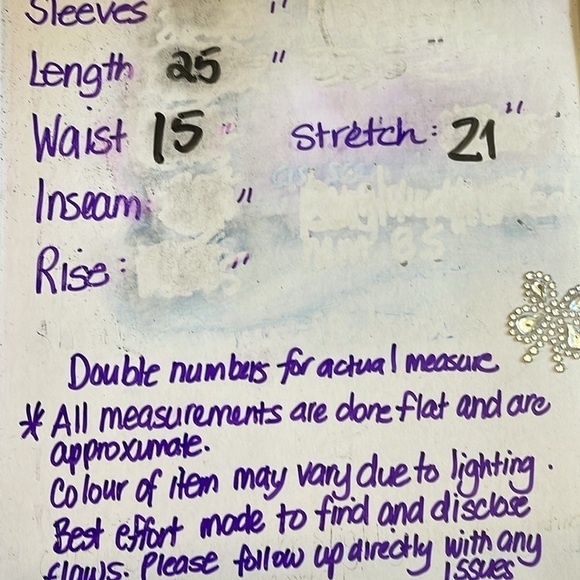 Sleeves "
Length 25 "
Waist 15 " Stretch: 21"
Inseam: "
Rise: "
Double numbers for actual measure
* All measurements are done flat and are
approximate.
Colour of item may vary due to lighting.
Best effort made to find and disclose
flaws. Please follow up directly with any
issues